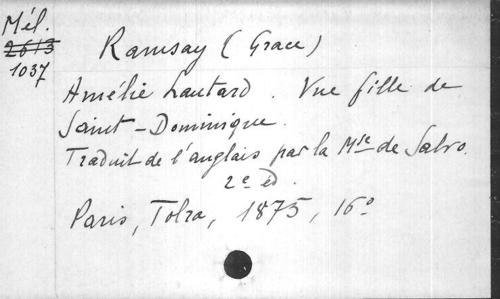 Mél.
2613
1037
Ramsay (Grace)
Amélie Lautard. Vue fille de
Saint-Dominique.
Traduit de l'anglais par la Mse de Salvo.
2e éd.
Paris, Tolra, 1875, 16º